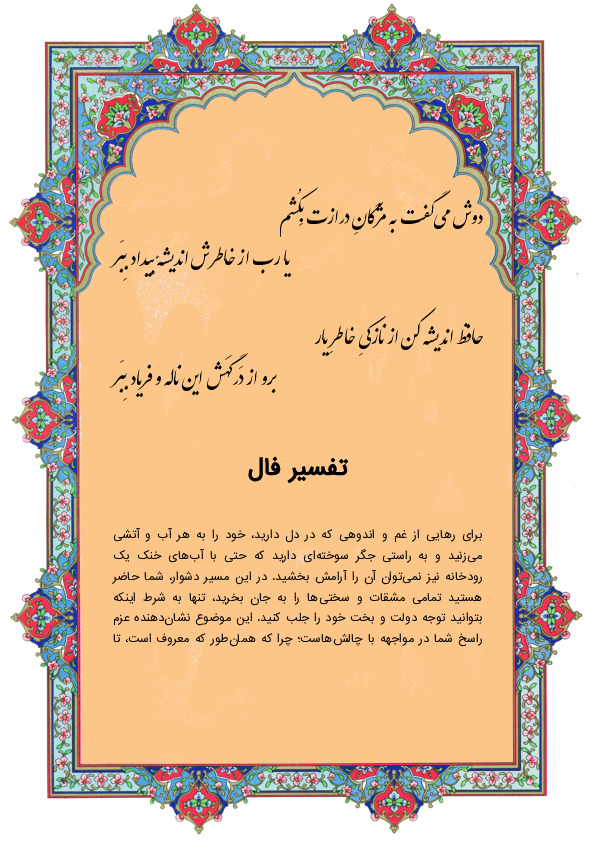 دوش می‌گفت به مژگانِ درازت بِکُشم
یا رب از خاطرش اندیشهٔ بیداد بِبَر
حافظ اندیشه کن از نازکیِ خاطرِ یار
برو از دَرگَهَش این ناله و فریاد بِبَر
تفسیر فال
برای رهایی از غم و اندوهی که در دل دارید، خود را به هر آب و آتشی
می‌زنید و به راستی جگر سوخته‌ای دارید که حتی با آب‌های خنک یک
رودخانه نیز نمی‌توان آن را آرامش بخشید. در این مسیر دشوار، شما حاضر
هستید تمامی مشقات و سختی‌ها را به جان بخرید، تنها به شرط اینکه
بتوانید توجه دولت و بخت خود را جلب کنید. این موضوع نشان‌دهنده عزم
راسخ شما در مواجهه با چالش‌هاست؛ چرا که همان‌طور که معروف است، تا